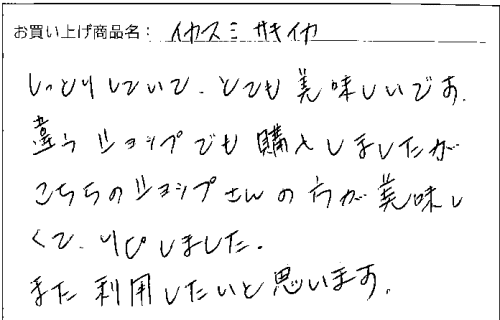 お買い上げ商品名: イカスミ サキイカ
しっとりしていて、とても美味しいです。
違うショップでも購入しましたが
こちらのショップさんの方が美味し
くて、リピしました。
また利用したいと思います。